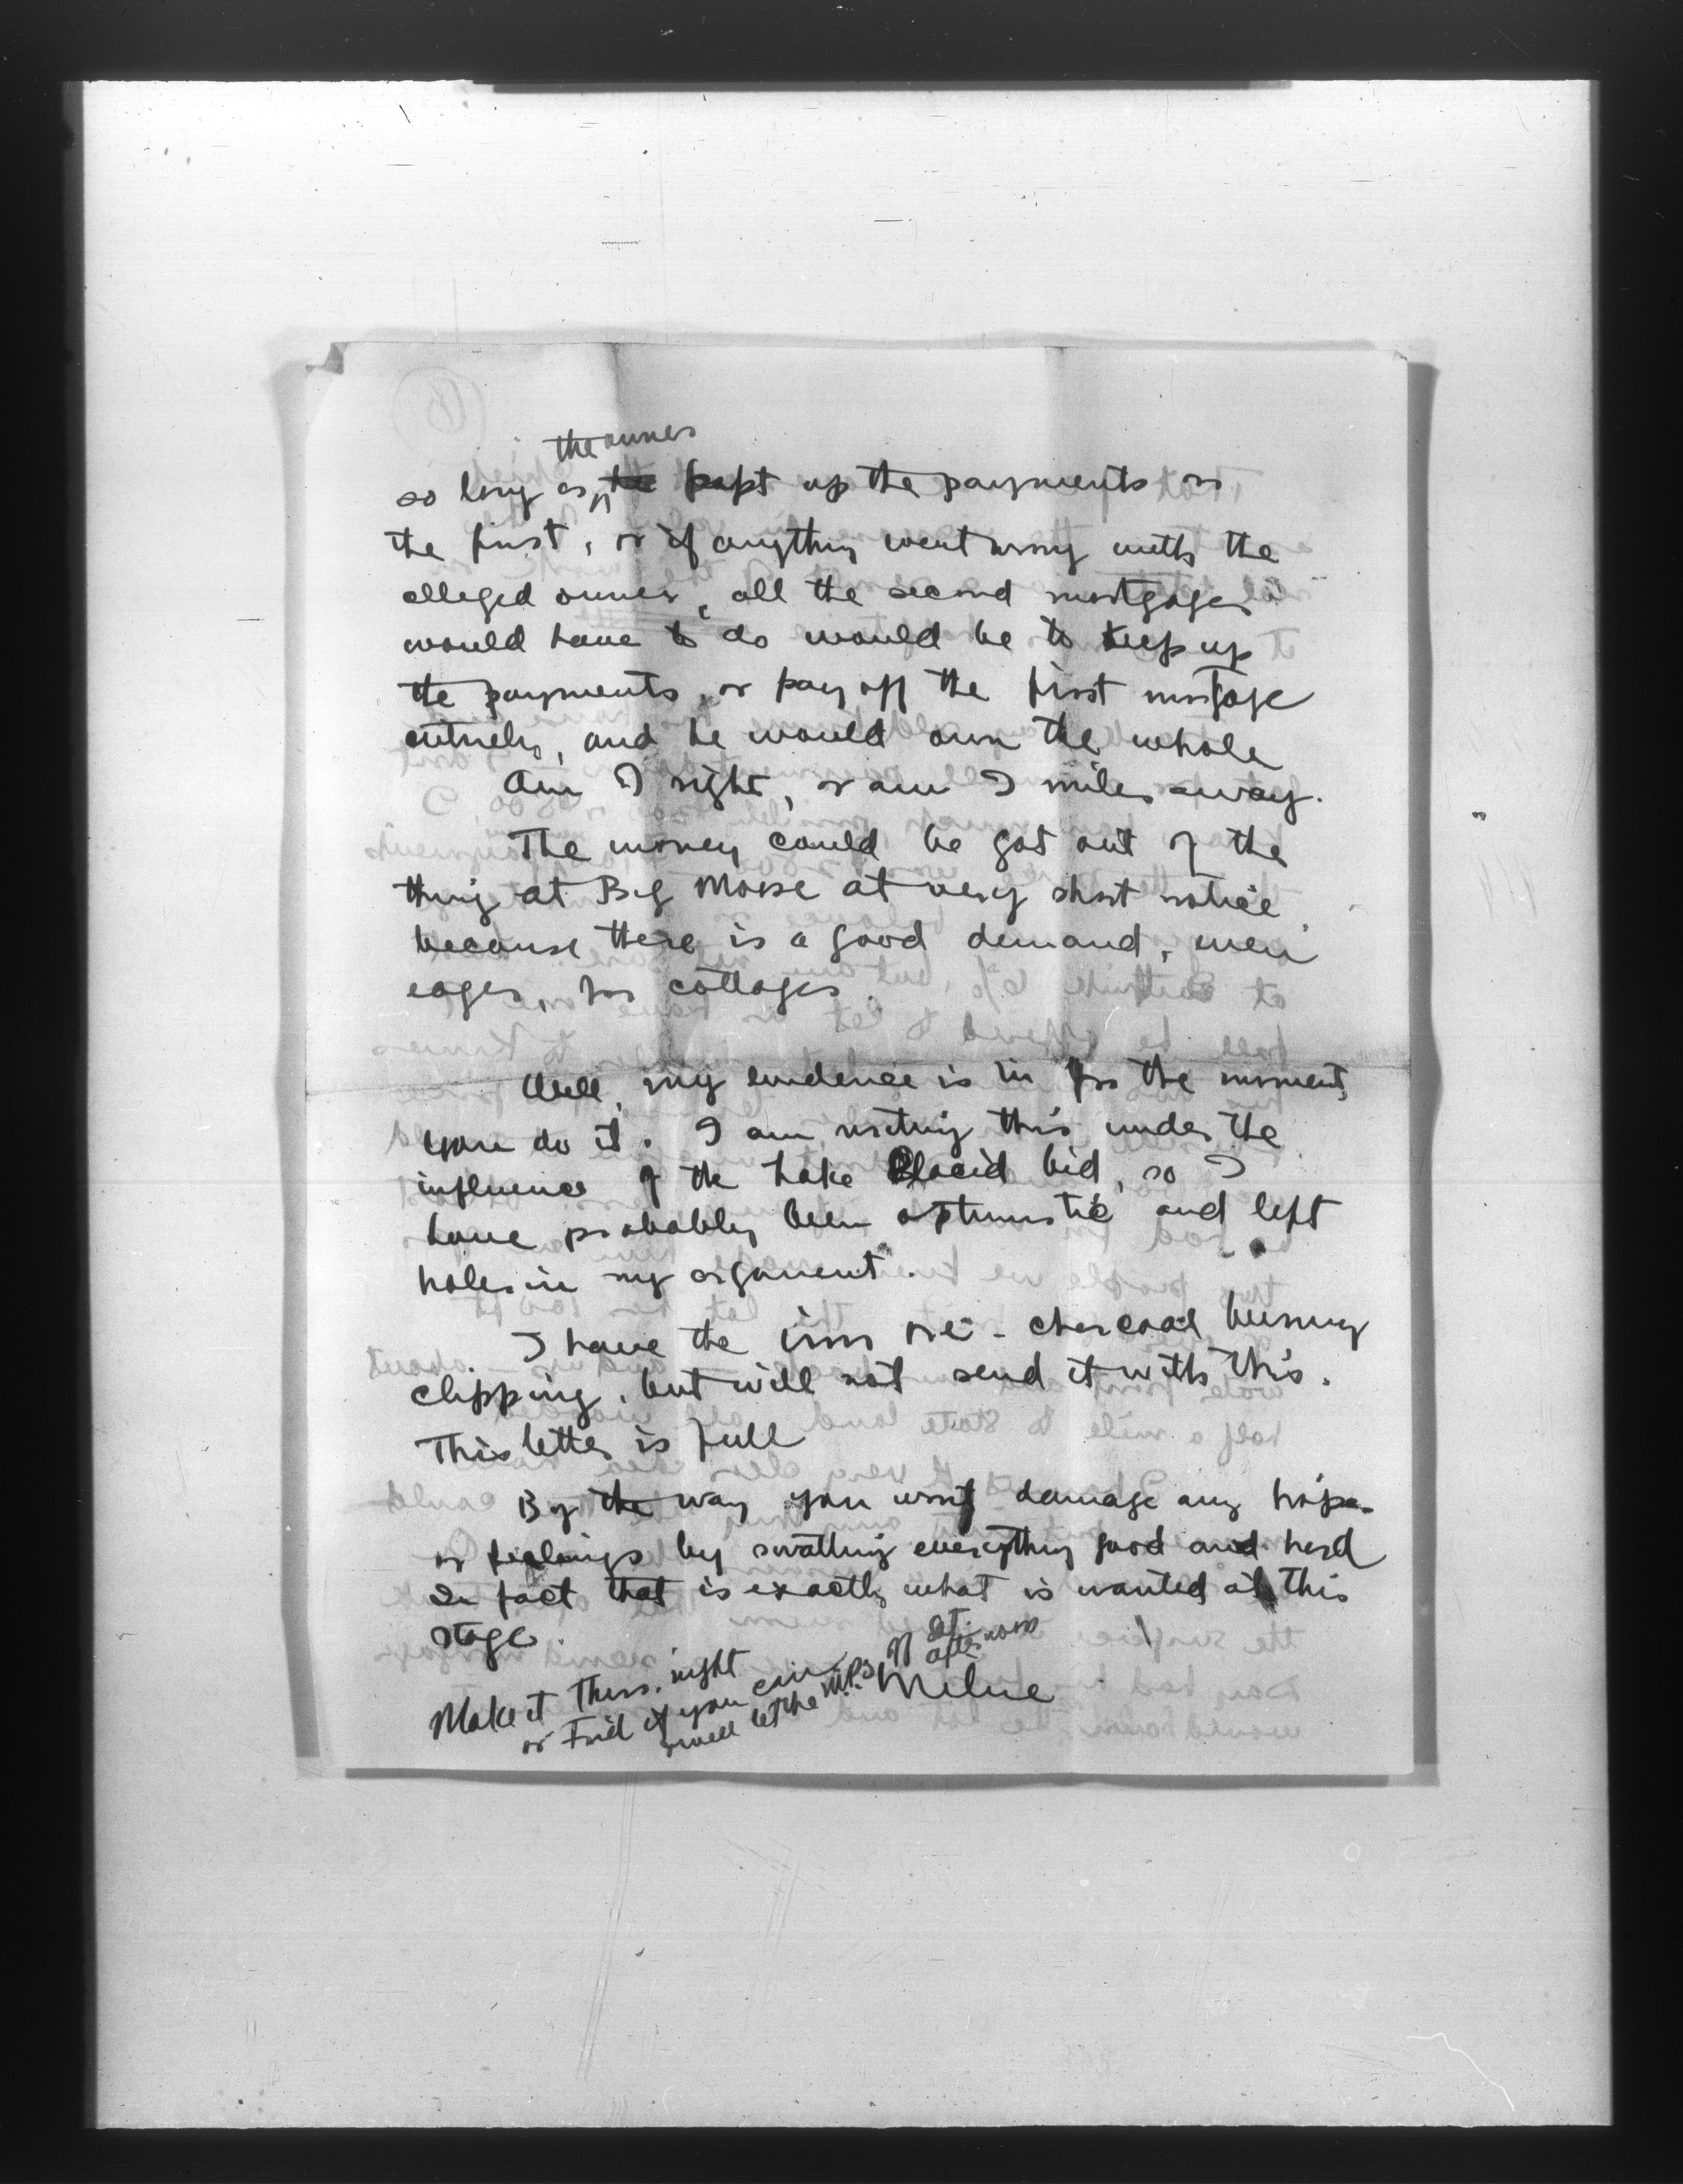 the owner
so long as he kept up the payments on
the first, or if anything went wrong with the
alleged owner, all the second mortgager
would have to do would be to keep up
the payments, or pay off the first mortgage
entirely, and he would own the whole
Am I right, or am I miles away.
The money could be got out of the
thing at Big Moose at very short notice
because there is a good demand, even
eager, for cottages.
Well, my evidence is in for the moment,
you do it. I am writing this under the
influence of the Lake Placid bid, so I
have probably been optimistic and left
holes in my argument.
I have the iron ore - charcoal burning
clipping, but will not send it with this.
This letter is full
By the way you wont damage any hopes
or feelings by swatting everything good and hard
In fact that is exactly what is wanted at this
stage.
Make it Thurs. night
or Frid if you can
Sat.
afternoon
Milne